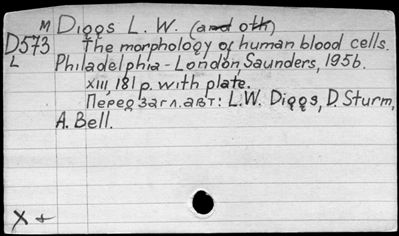 M Diggs L. W. (and oth)
D573 The morphology of human blood cells.
L Philadelphia - London, Saunders, 1956.
XIII, 181 p. with plate.
Перед загл. авт: L.W. Diggs, D. Sturm,
A. Bell.
X +